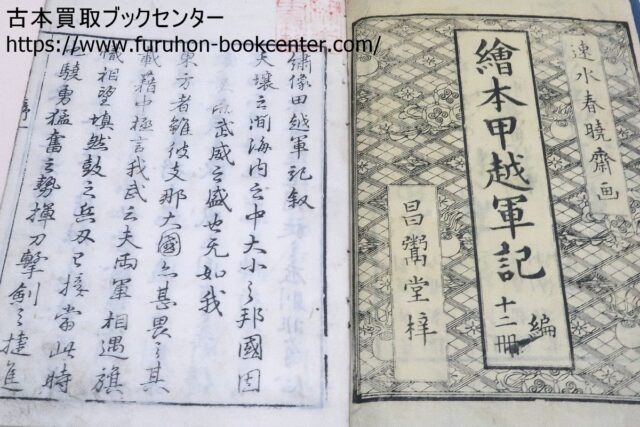 古本買取ブックセンター
https://www.furuhon-bookcenter.com/
速水春曉齋画
繪本甲越軍記
編
十二冊
昌鬻堂梓
繍像甲越軍記叙
夫壤之間海内之中大小之邦國固
武威之盛世无如我
東方者雖彼支那大國亦甚畏之其
載籍中極言我武云夫両軍相遇旗
幟相望填然鼓之兵刃已接當此時
驍勇猛奮之勢揮刀撃劍之捷進
序一